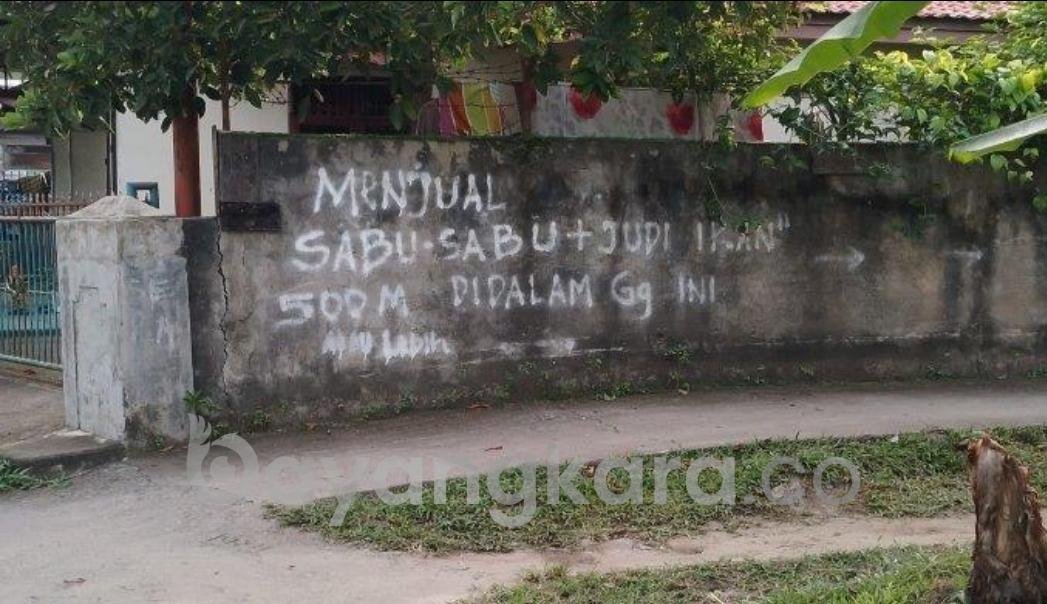 MENJUAL
SABU-SABU + JUDI IKAN"
500 M DIDALAM Gg INI
Lebih
bayangkara.co